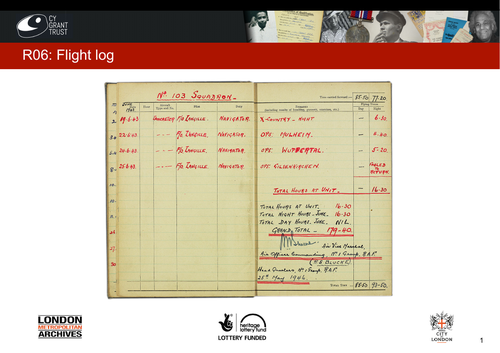 CY
GRANT
TRUST
R06: Flight log
Nº 103 SQUADRON.
Time carried forward:— 85.50 77.20
DATE
Hour
Pilot
Duty
REMARKS
Flying Times
Day
Night
19.6.43 LANCASTER F/O LANGILLE NAVIGATOR. X-COUNTRY - NIGHT — 6.30
22.6.43 F/O LANGILLE. NAVIGATOR. OPS. MULHEIM.
24.6.43 F/O LANGILLE. NAVIGATOR OPS. WUPPERTAL. 5.20.
25.6.43. F/O LANGILLE NAVIGATOR. OPS. GILZENKIRCHEN FAILED TO RETURN
TOTAL HOURS AT UNIT. — 16.30
TOTAL HOURS AT UNIT. 16.30
TOTAL NIGHT HOURS. JUNE. 16.30
TOTAL DAY HOURS. JUNE. NIL.
GRAND TOTAL - 179-40.
Air Vice Marshal,
Air Officer Commanding, Nº 1 Group, R.A.F.
Head Quarters, Nº 1 Group, R.A.F.
25th May 1946.
TOTAL TIME
LONDON
METROPOLITAN
ARCHIVES
heritage
lottery fund
LOTTERY FUNDED
CITY
LONDON
1